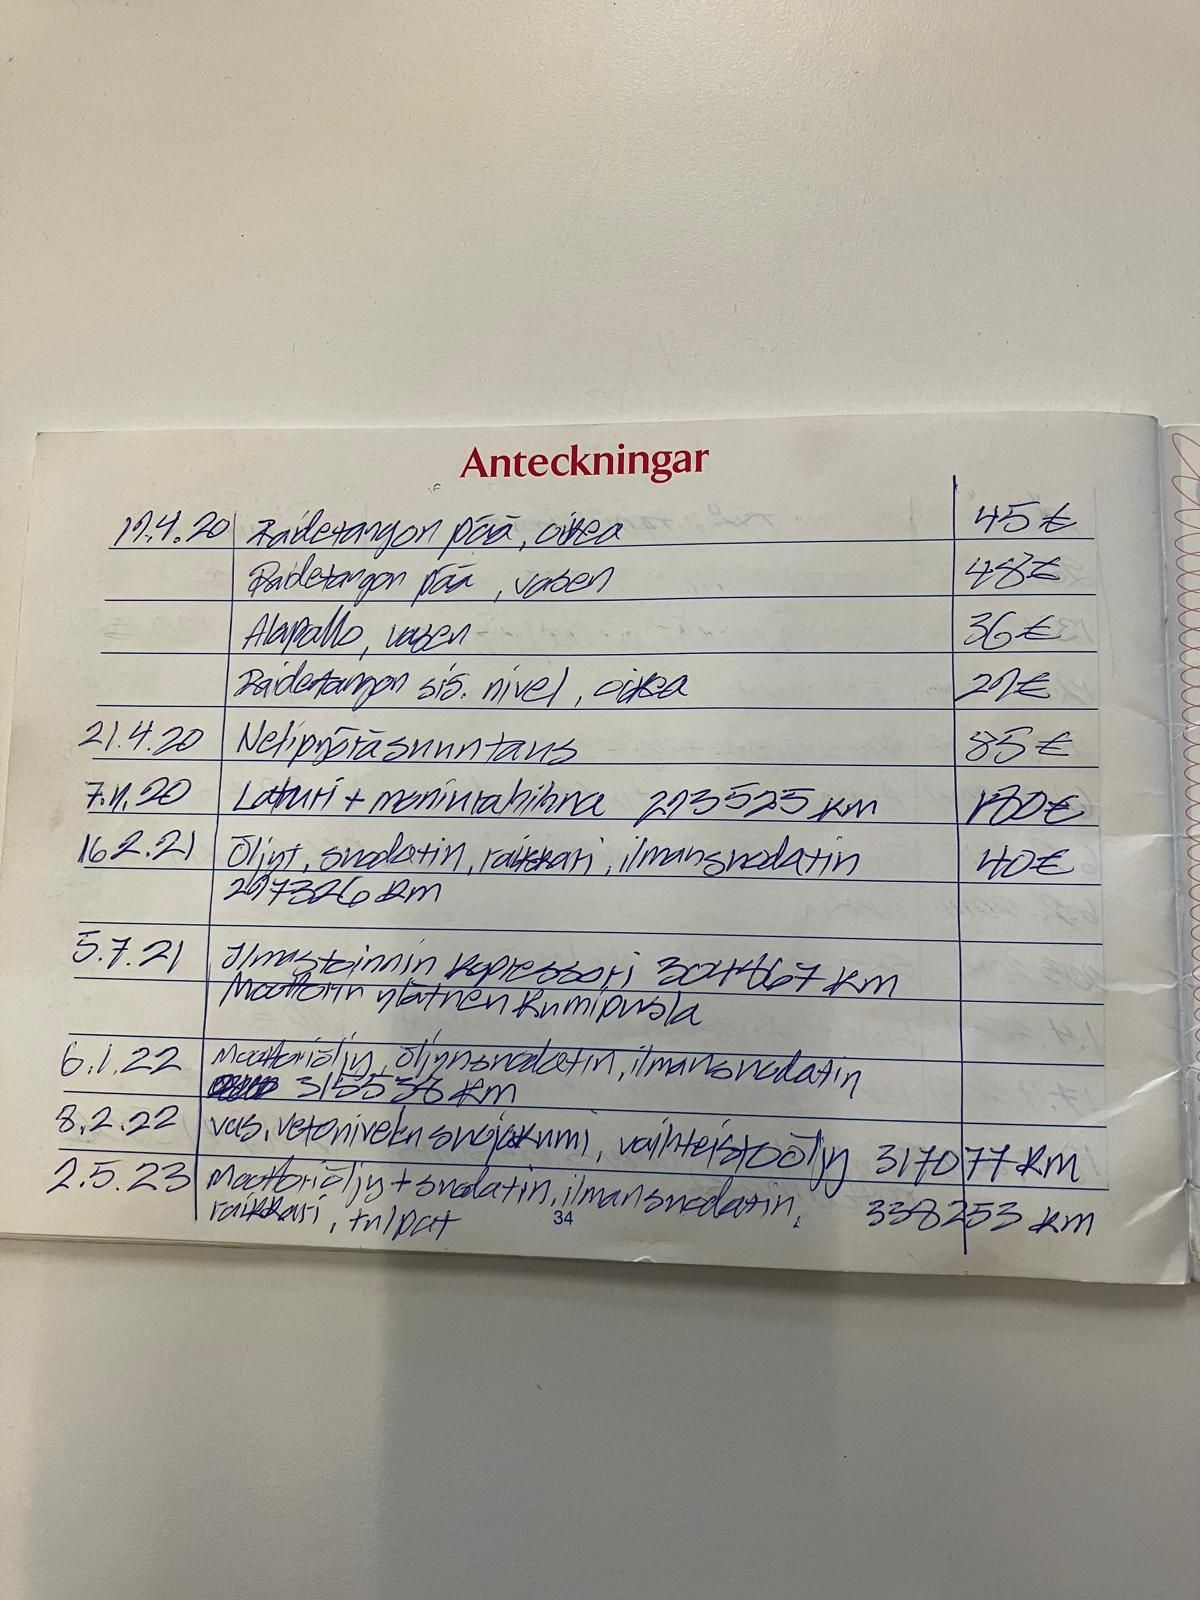 Anteckningar
17.4.20 Raidetangon pää, oikea 45€
Raidetangon pää, vasen 48€
Alapallo, vasen 36€
Raidetangon sis. nivel, oikea 27€
21.4.20 Nelipyöräsuuntaus 85€
7.11.20 Laturi + moniurahihna 293525 km 180€
16.2.21 Öljyt, suodatin, raikkari, ilmansuodatin 40€
297326 km
5.7.21 Ilmastoinnin kopressori km
Moottorin ylätuen kumipusla
6.1.22 Moottoriöljy, öljynsuodatin, ilmansuodatin
315538 km
8.2.22 vas. vetonivelen suojakumi, vaihteistoöljy 317077 km
2.5.23 Moottoriöljy + suodatin, ilmansuodatin, 338253 km
raikkari, tulpat
34